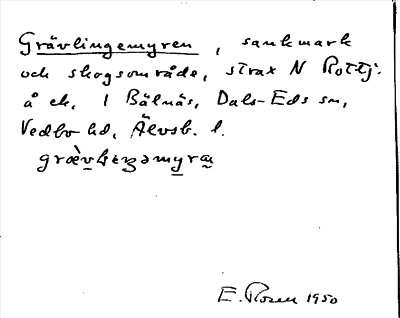 Grävlingemyren, sankmark
och skogsområde, strax N Rottj.
å ek. 1 Bälnäs, Dals-Eds sn,
Vedbo hd, Älvsb. l.
E. Rosen 1950